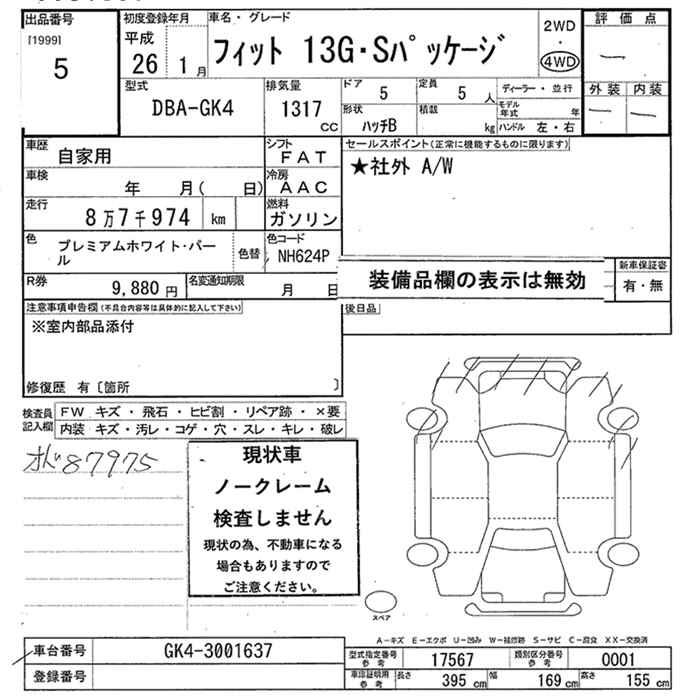 出品番号 初度登録年月 車名・グレード 2WD 評価点
[1999] 平成 フィット 13G・Sパッケージ 4WD
5 26 1月 —
型式 排気量 ドア 5 定員 5人 ディーラー・並行 外装 内装
DBA-GK4 1317 cc 形状 ハッチB 積載 kg モデル年式 年 — —
ハンドル 左・右
車歴 自家用 シフト FAT セールスポイント(正常に機能するものに限ります)
車検 年 月( 日) 冷房 AAC ★社外 A/W
走行 8万7千974 km 燃料 ガソリン
色 プレミアムホワイト・パール 色替 色コード NH624P
装備品欄の表示は無効 新車保証書
R券 9,880円 名変通知期限 月 日 有・無
注意事項申告欄(不具合内容等は具体的に記入して下さい) 後日品
※室内部品添付
修復歴 有〔箇所 〕
検査員記入欄 FW キズ・飛石・ヒビ割・リペア跡・×要
内装 キズ・汚レ・コゲ・穴・スレ・キレ・破レ
オド87975
現状車
ノークレーム
検査しません
現状の為、不動車になる
場合もありますので
ご注意ください。
スペア
A-キズ E-エクボ U-凹み W-補修跡 S-サビ C-腐食 XX-交換済
車台番号 GK4-3001637 型式指定番号 参考 17567 類別区分番号 参考 0001
登録番号 車車証明用 参考 長さ 395 cm 幅 169 cm 高さ 155 cm